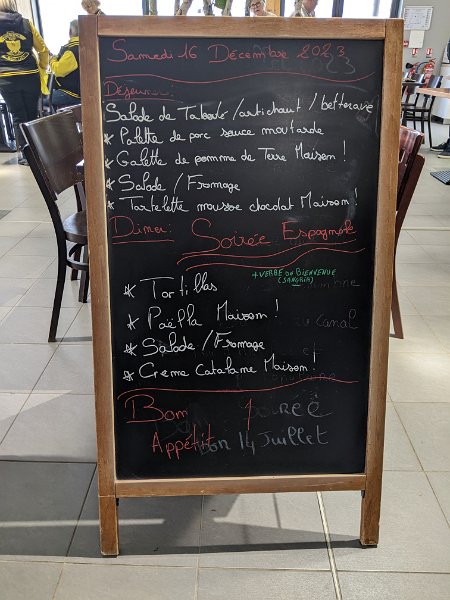 Samedi 16 Décembre 2023
Déjeuner:
Salade de Taboulé / artichaut / betterave
* Palette de porc sauce moutarde
* Galette de pomme de Terre Maison !
* Salade / Fromage
* Tartelette mousse chocolat Maison !
Dîner: Soirée Espagnole
+ VERRE de BIENVENUE
(SANGRIA)
* Tortillas
* Paëlla Maison !
* Salade / Fromage
* Crème Catalane Maison !
Bon
Appétit !
SOIREE
Bon 14 Juillet